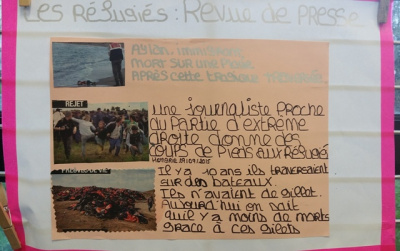 Les Réfugiés : Revue de presse
Aylan, immigrant,
mort sur une plage
Après cette tragique
REJET
Une journaliste proche
du partie d'extrême
droite donne des
coups de pieds aux réfugiés
Il y a 10 ans ils traversaient
sur des bateaux.
Ils n'avaient de gillet.
Aujourd'hui on sait
qu'il y a moins de morts
grace à ces gilets